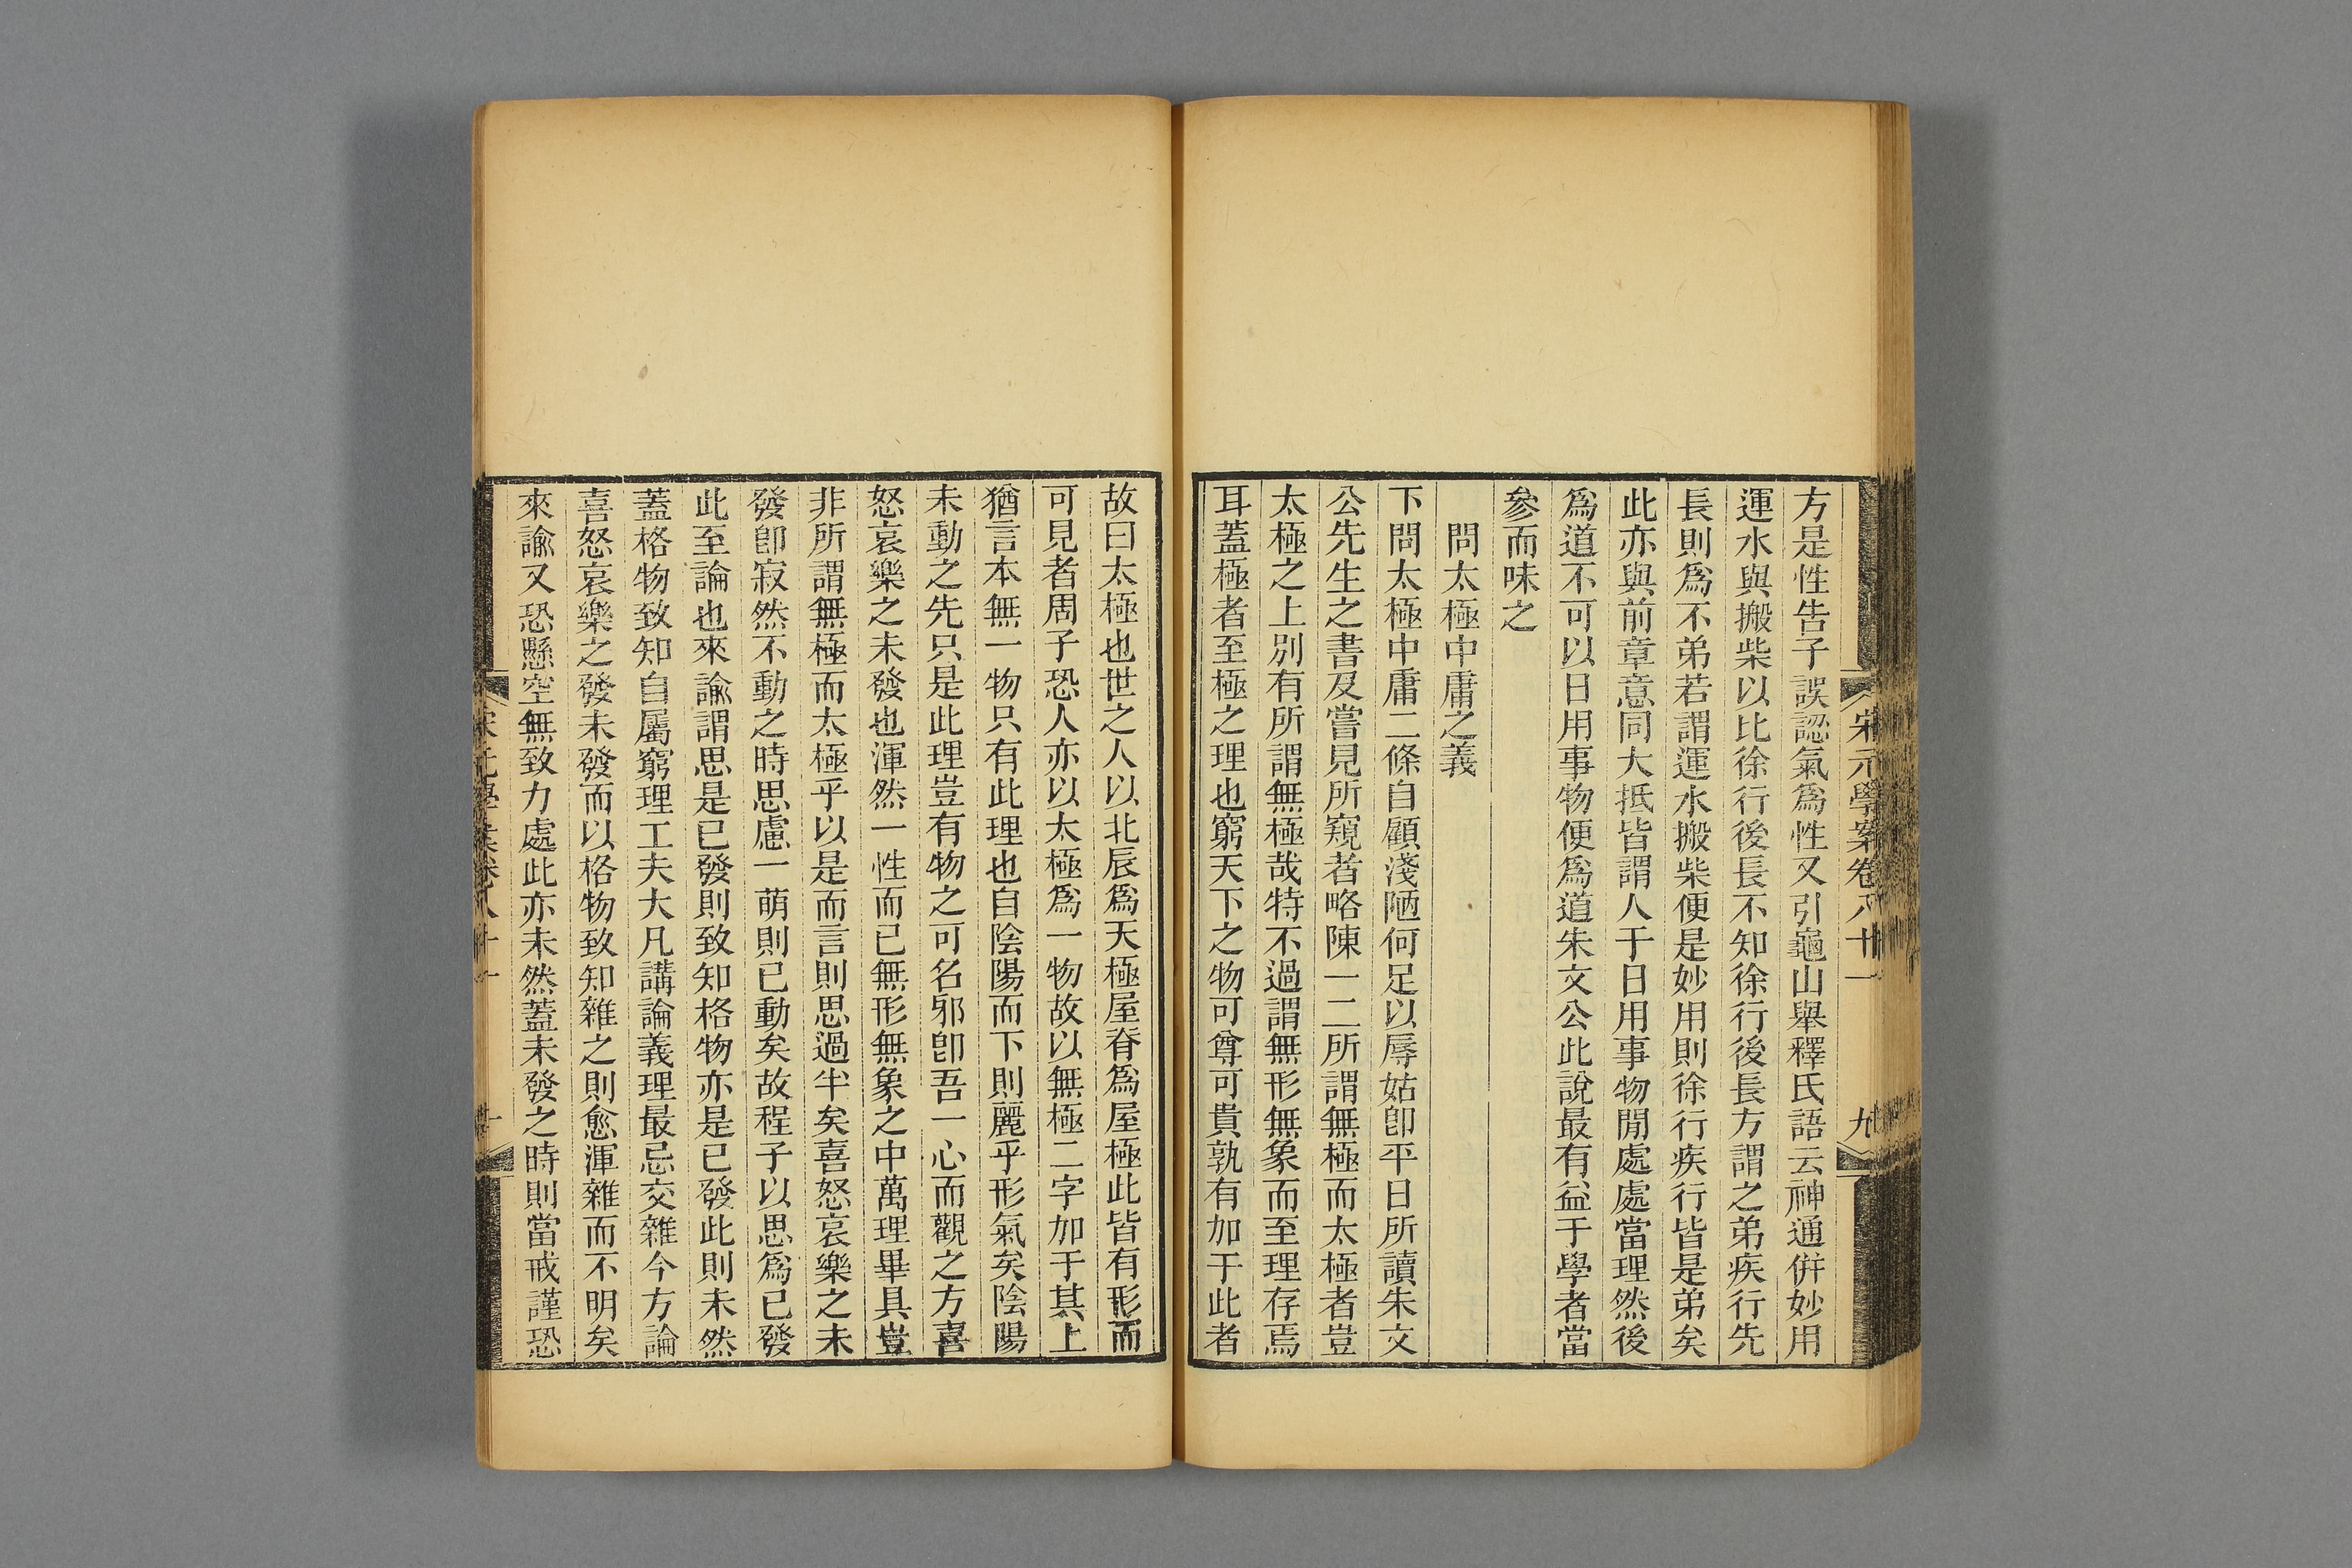 宋元學案卷八十一
九
方是性告子誤認氣爲性又引龜山舉釋氏語云神通併妙用
運水與搬柴以比徐行後長不知徐行後長方謂之弟疾行先
長則爲不弟若謂運水搬柴便是妙用則徐行疾行皆是弟矣
此亦與前章意同大抵皆謂人于日用事物閒處處當理然後
爲道不可以日用事物便爲道朱文公此說最有益于學者當
參而味之
問太極中庸之義
下問太極中庸二條自顧淺陋何足以辱姑卽平日所讀朱文
公先生之書及嘗見所窺者略陳一二所謂無極而太極者豈
太極之上別有所謂無極哉特不過謂無形無象而至理存焉
耳蓋極者至極之理也窮天下之物可尊可貴孰有加于此者
故曰太極也世之人以北辰爲天極屋脊爲屋極此皆有形而
可見者周子恐人亦以太極爲一物故以無極二字加于其上
猶言本無一物只有此理也自陰陽而下則麗乎形氣矣陰陽
未動之先只是此理豈有物之可名邪卽吾一心而觀之方喜
怒哀樂之未發也渾然一性而已無形無象之中萬理畢具豈
非所謂無極而太極乎以是而言則思過半矣喜怒哀樂之未
發卽寂然不動之時思慮一萌則已動矣故程子以思爲已發
此至論也來諭謂思是已發則致知格物亦是已發此則未然
蓋格物致知自屬窮理工夫大凡講論義理最忌交雜今方論
喜怒哀樂之發未發而以格物致知雜之則愈渾雜而不明矣
來諭又恐懸空無致力處此亦未然蓋未發之時則當戒謹恐
宋元學案卷八十一